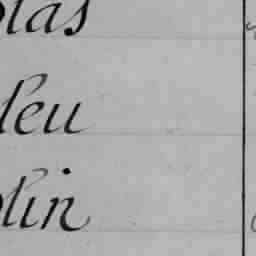 olas
leu
lin